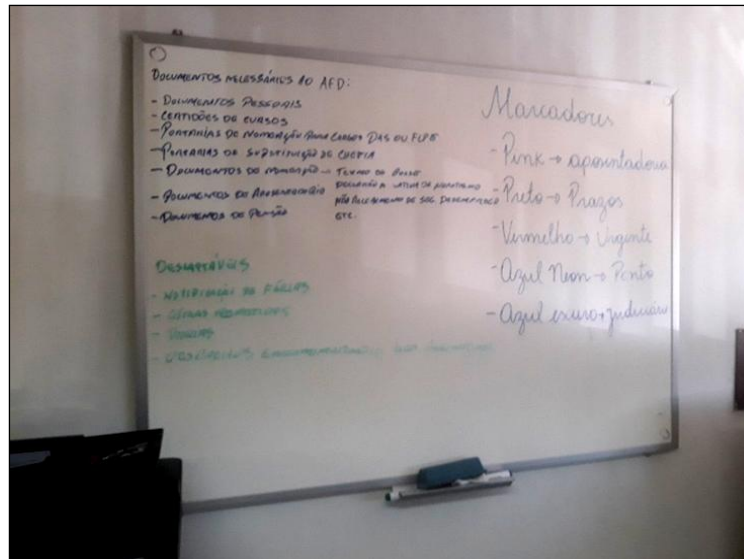 DOCUMENTOS NECESSÁRIOS AO AFD:
- DOCUMENTOS PESSOAIS
- CERTIDÕES DE CURSOS
- PORTARIAS DE NOMEAÇÃO PARA CARGOS DAS OU FCPE
- PORTARIAS DE SUBSTITUIÇÃO DE CHEFIA
- DOCUMENTOS DE NOMEAÇÃO - TERMO DE POSSE
- DOCUMENTOS DE APOSENTADORIA
NÃO RECEBIMENTO DE SEG. DESEMPREGO
- DOCUMENTOS DE PENSÃO
ETC.
DESCARTÁVEIS
- NOTIFICAÇÃO DE FÉRIAS
Marcadores
- Pink → aposentadoria
- Preto → Prazos
- Vermelho → Urgente
- Azul Neon → Ponto
- Azul escuro → judiciário